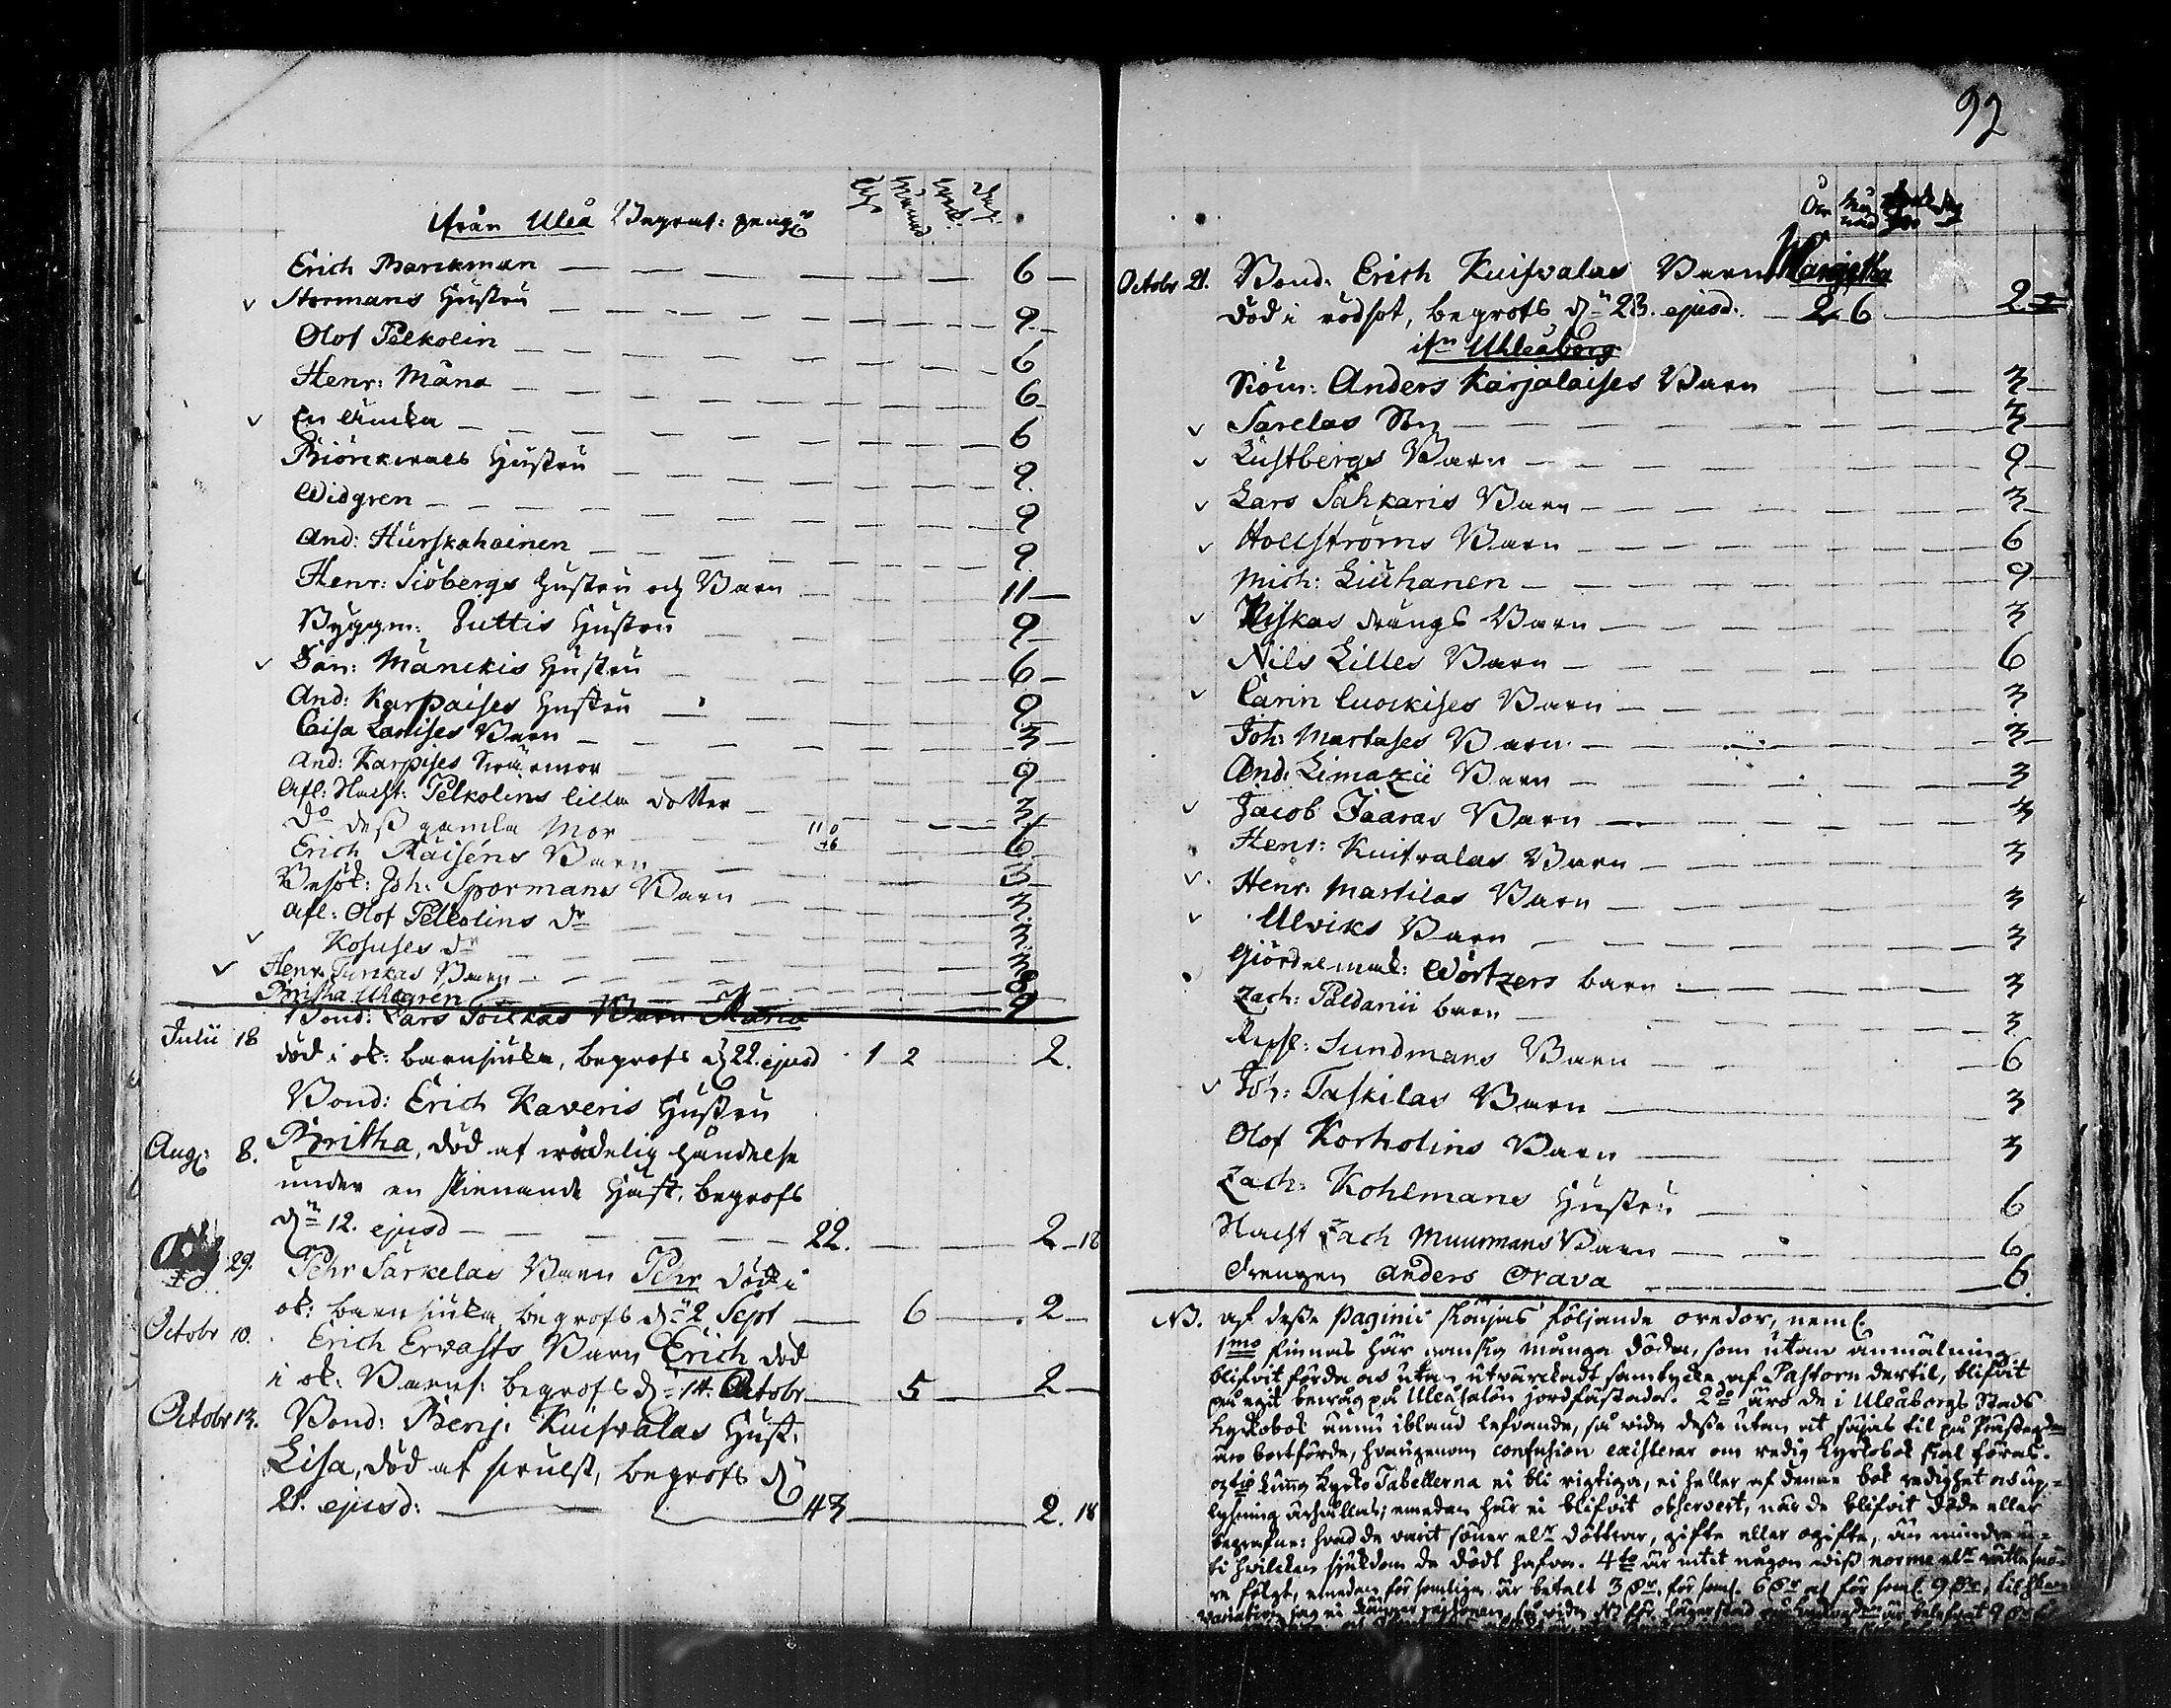 ifrån Uleå Begraf: peng:r
Erich Barckman 6
Stormans Hustru 9
Olof Pelkolin 6
Henr: Måna 6
En Encka 6
Biörckmans Hustru 9
Widgren 9
And: Hurskahainen 9
Henr: Siöbergs Hustru och Barn 11
Byggm: Tuttis Hustru 9
Dan: Månckis Hustru 6
And: Karpaises Hustru 9
Caisa Larises Barn 3
And: Karpises Swärmor 9
Afl: Nacht: Pelkolins lilla dotter 3
Do deß gamla Mor 6
Erich Räiséns Barn 3
Besök: Joh: Spormans Barn 3
Afl: Olof Pelkolins do 3
Kosuses do 3
Henr: Turckas Barn 6
Britha Uhlgrén 9
Julii 18 Bond: Lars Toickas Barn Maria
död i ok: barnsiuka, begrofs d 22. ejusd 1 2 2.
Bond: Erich Kaveris Hustru
Aug: 8. Britha, död af wådelig händelse
under en skienande Häst, begrofs
dn 12. ejusd 22. 2 18
29. Pehr Särkelas Barn Pehr död i
ok: barnsiuka, begrofs dn 2 Sept 6 2
Octobr 10. Erich Ervasts Barn Erich död
i ok: Barns: begrofs dn 14. Octobr 5 2
Octobr 13. Bond: Benj: Kuisvalas Hust:
Lisa, död af swulst, begrofs dn
21. ejusd: 43 2. 18
92
Octobr 21. Bond: Erich Kuisvalas Barn Margetha
död i rödsot, begrofs dn 23. ejusd. 2 6 2
ifrn Uhleåborg
Siöm: Anders Karjalaises Barn 3
Sarelas Son 3
Lustbergs Barn 9
Lars Sahkaris Barn 3
Hollströms Barn 6
Mich: Liuhanen 9
Kiskas drängs Barn 3
Nils Lilles Barn 6
Carin Cuockises Barn 3
Joh: Martases Barn 3
And: Limazii Barn 3
Jacob Jaaras Barn 3
Henr: Kuitvalas Barn 3
Henr: Martilas Barn 3
Ulviks Barn 3
Giördelmak: Wörtzers barn 3
Zach: Paldanii barn 3
Sundmans Barn 6
Joh: Taskilas Barn 3
Olof Korholins Barn 3
Zach: Kohlmans Hustru 6
Nacht Zach Muurmans Barn 6
Drengen Anders Orava 6
NB. af deße Paginis skönjes följande oredor, neml.
1mo finnas här ganska många döda, som utan anmälning
blifvit förda och utan utwärckadt samtycke af Pastorn dertil, blifvit
på egit bewåg på Uleåsalön jordfästade. 2do äro de i Uleåborgs Stads
Kyrkobok ännu ibland lefvande, så vida deße utan at säjas til på Prästegården
äro bortförde, hvarigenom confusion existerar om redig Kyrkobok skal föras.
3tio kunna Kyrko Tabellerna ei bli rigtiga, ei heller af denne bok redighet och up-
lysning ärhållas; emedan här ei blifvit observert, när de blifvit döde eller
begrafne: hvad de varit söner elr döttrar, gifte eller ogifte, än mindre u-
ti hvilken sjukdom de dödt hafva. 4to är intet någon wiß norme elr rättesnö-
re följt, emedan för somliga är betalt 3 ör, för soml. 6 ör och för soml. 9 ör,